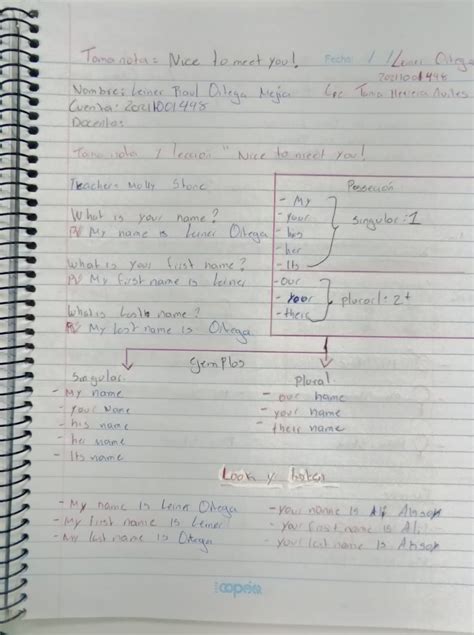 Toma nota: Nice to meet you! Fecha: / / Leiner Ortega
20211001498
Nombre: Leiner Raul Ortega Mejia Lic Tania
Cuenta: 20211001498
Docente:
Toma nota / leccion "Nice to meet you!
Teacher: Molly Stone
Possecion
- My
- your
- his
- her
- Its
singular: 1
- our
- your
- their
plural: 2+
What is your name?
R// My name is Leiner Ortega
What is your first name?
R// My first name is Leiner
What is name?
R// My last name is Ortega
Ejemplos
Singular.
- My name
- your Name
- his name
- her name
- Its name
Plural.
- our name
- your name
- their name
Look y listen
- My name is Leiner Ortega
- My first name is Leiner
- My last name is Ortega
- your name is Ali
- your first name is Ali
- your last name is
coprisa